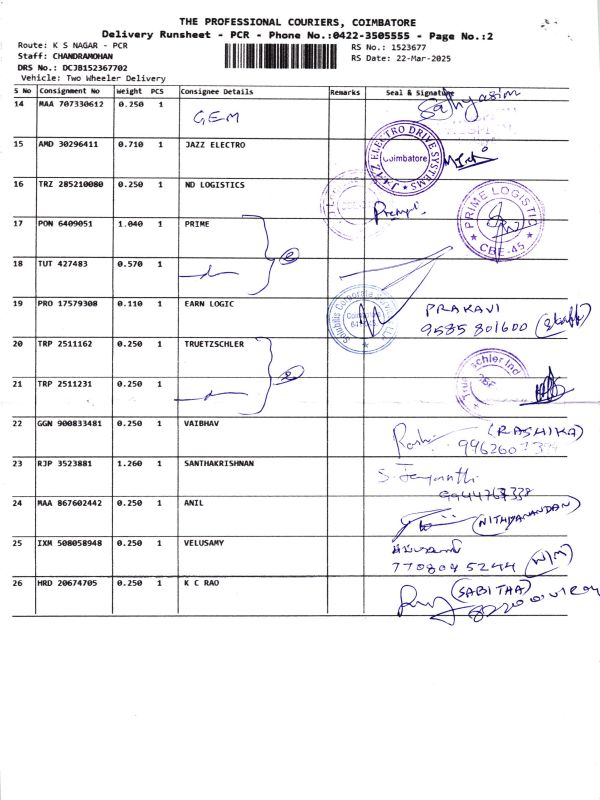 THE PROFESSIONAL COURIERS, COIMBATORE
Delivery Runsheet - PCR - Phone No.:0422-3505555 - Page No.:2
Route: K S NAGAR - PCR
RS No.: 1523677
Staff: CHANDRAMOHAN
RS Date: 22-Mar-2025
DRS No.: DCJB152367702
Vehicle: Two Wheeler Delivery
S No Consignment No Weight PCS Consignee Details Remarks Seal & Signature
14 MAA 707330612 0.250 1 GEM
15 AMD 30296411 0.710 1 JAZZ ELECTRO
ELECTRO DRIVE SYSTEMS
Coimbatore
16 TRZ 285210080 0.250 1 ND LOGISTICS
17 PON 6409051 1.040 1 PRIME
PRIME LOGISTIC
CBE-45
18 TUT 427483 0.570 1
19 PRO 17579308 0.110 1 EARN LOGIC PRAKAVI
9585801600
20 TRP 2511162 0.250 1 TRUETZSCHLER
21 TRP 2511231 0.250 1
22 GGN 900833481 0.250 1 VAIBHAV (RASHIKA)
23 RJP 3523881 1.260 1 SANTHAKRISHNAN S. Jayanthi
24 MAA 867602442 0.250 1 ANIL (NITHYANANDAN)
25 IXM 508058948 0.250 1 VELUSAMY
7708045244 W/M
26 HRD 20674705 0.250 1 K C RAO (SABITHA)